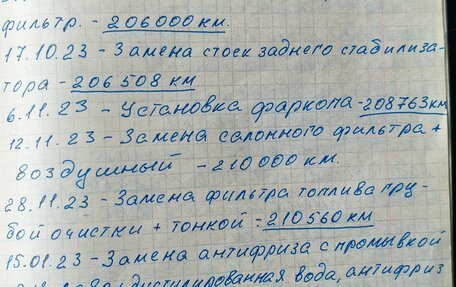 фильтр. - 206000 км.
17.10.23 - Замена стоек заднего стабилиза-
тора - 206508 км
6.11.23 - Установка фаркопа - 208763 км
12.11.23 - Замена салонного фильтра +
воздушный - 210000 км.
28.11.23 - Замена фильтра топлива гру-
бой очистки + тонкой - 210560 км
15.01.23 - Замена антифриза с промывкой
дистилированная вода, антифриз